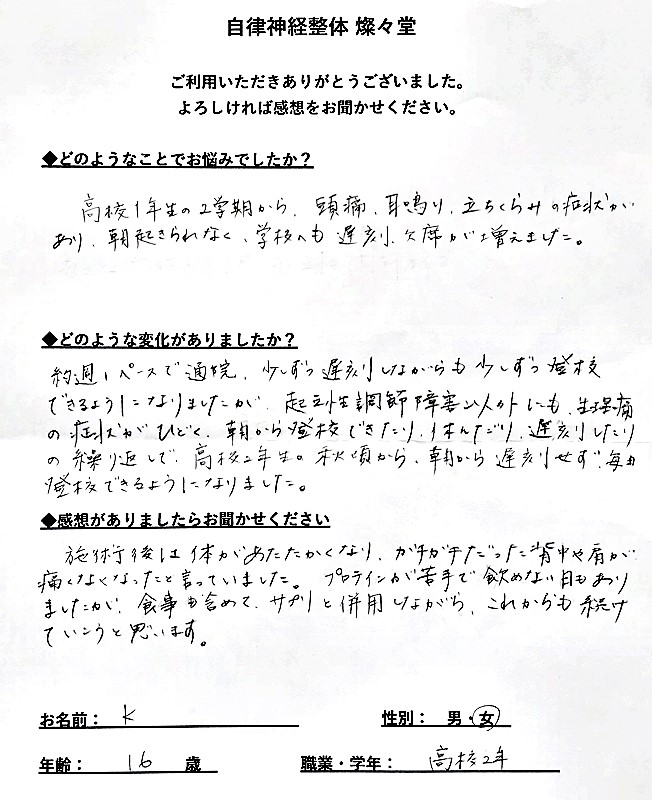 自律神経整体 燦々堂
ご利用いただきありがとうございました。
よろしければ感想をお聞かせください。
◆どのようなことでお悩みでしたか？
高校1年生の2学期から、頭痛、耳鳴り、立ちくらみの症状が
あり、朝起きられなく、学校へも遅刻、欠席が増えました。
◆どのような変化がありましたか？
約週1ペースで通院、少しずつ遅刻しながらも少しずつ登校
できるようになりましたが、起立性調節障害以外にも、生理痛
の症状がひどく、朝から登校できたり、休んだり、遅刻したり
の繰り返しで、高校2年生の秋頃から、朝から遅刻せず毎日
登校できるようになりました。
◆感想がありましたらお聞かせください
施術後は体があたたかくなり、ガチガチだった背中や肩が
痛くなくなったと言っていました。プロテインが苦手で飲めない日もあり
ましたが、食事も含めて、サプリと併用しながら、これからも続け
ていこうと思います。
お名前： K
性別： 男・女
年齢： 16 歳
職業・学年： 高校2年